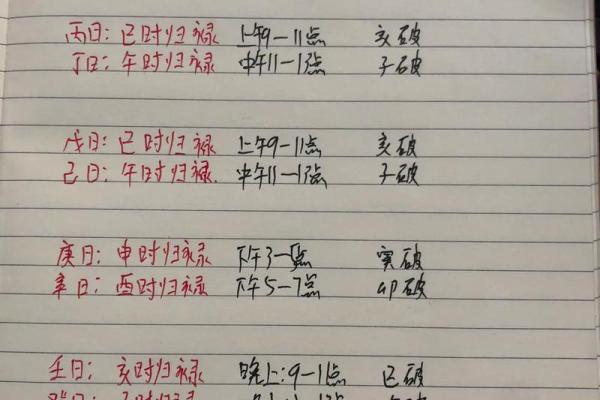 丙日：巳时归禄 上午9—11点 亥破
丁日：午时归禄 中午11—1点 子破
戊日：巳时归禄 上午9—11点 亥破
己日：午时归禄. 中午11—1点 子破
庚日：申时归禄 下午3—5点 寅破
辛日：酉时归禄 下午5—7点 卯破
壬日：亥时归禄 晚上：9—11点 巳破